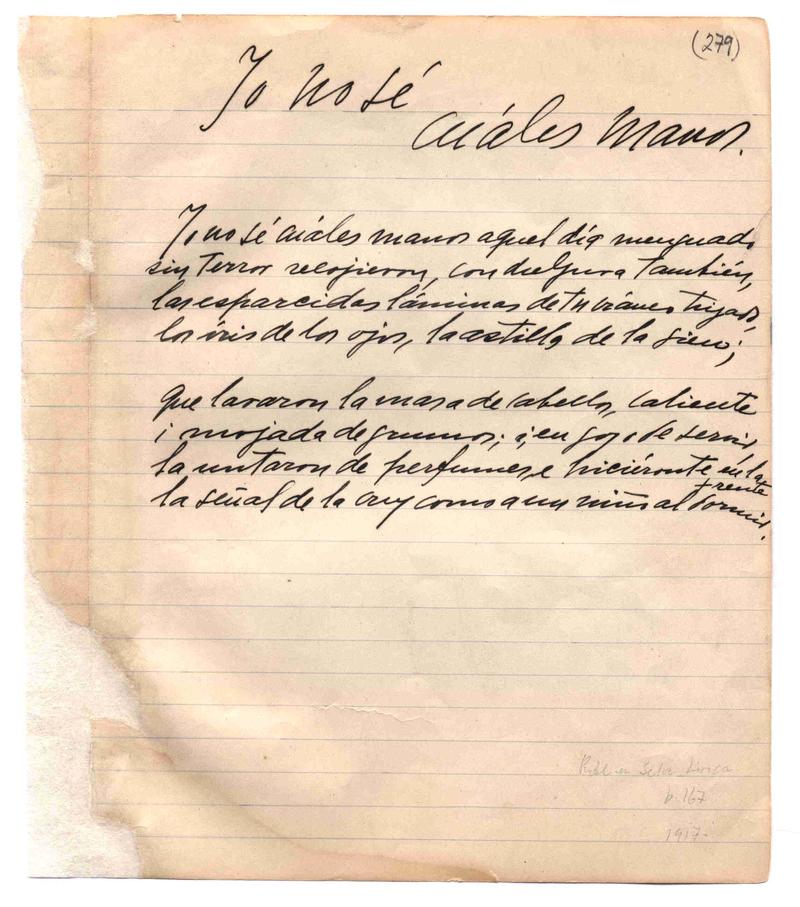 (279)
Yo no sé
cuáles manos.
Yo no sé cuáles manos aquel día menguado
sin terror recojieron, con dulzura también,
las esparcidas láminas de tu cráneo trizado,
los iris de los ojos, la astilla de la sien;
que lavaron la masa de cabellos, caliente
i mojada de grumos; i, en gozo de servir
la untaron de perfumes, e hiciéronte en la
frente
la señal de la cruz como a un niño al dormir.
Publ. en Selva Lírica
p. 167
1917.